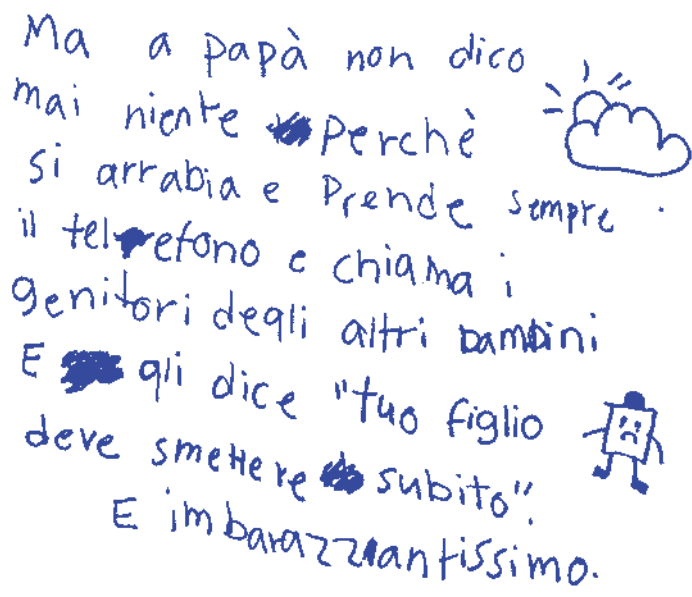 Ma a papà non dico
mai niente Perchè
si arrabia e Prende sempre
il telefono e chiama i
genitori degli altri bambini
E gli dice "tuo figlio
deve smettere subito".
E imbarazzantissimo.